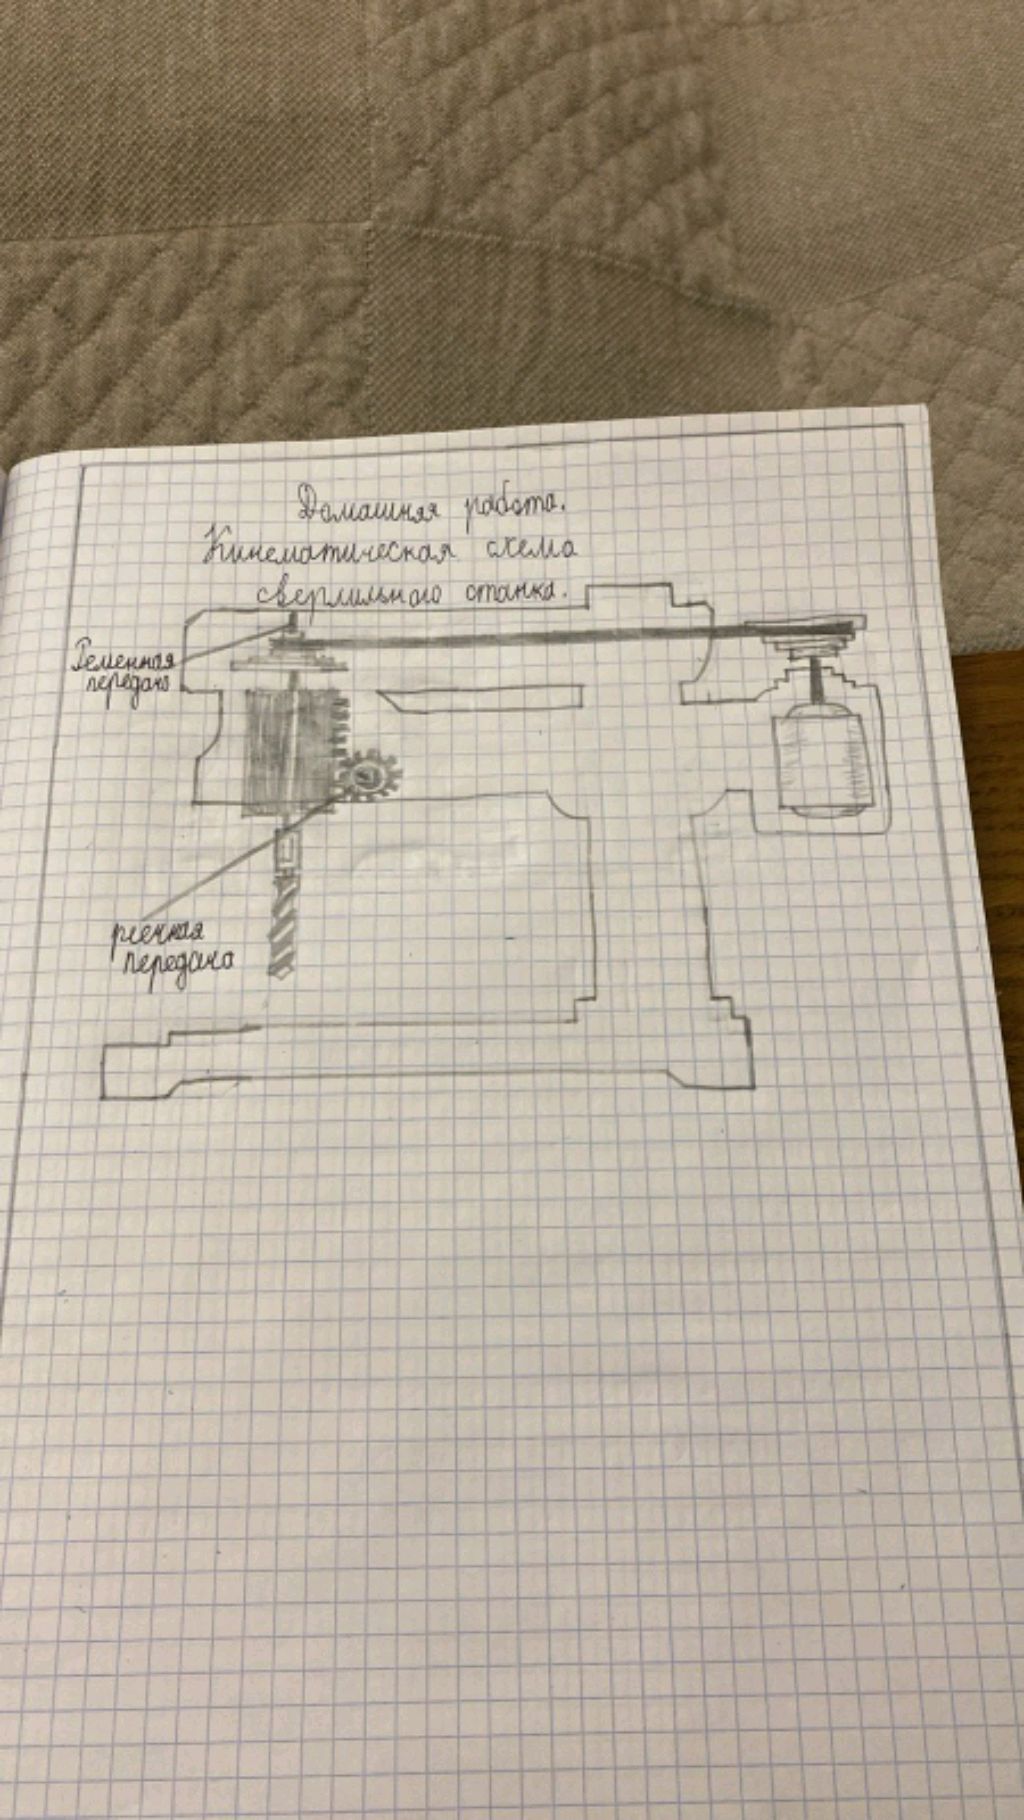 Домашняя работа.
Кинематическая схема
сверлильного станка.
Ременная
передача
реечная
передача